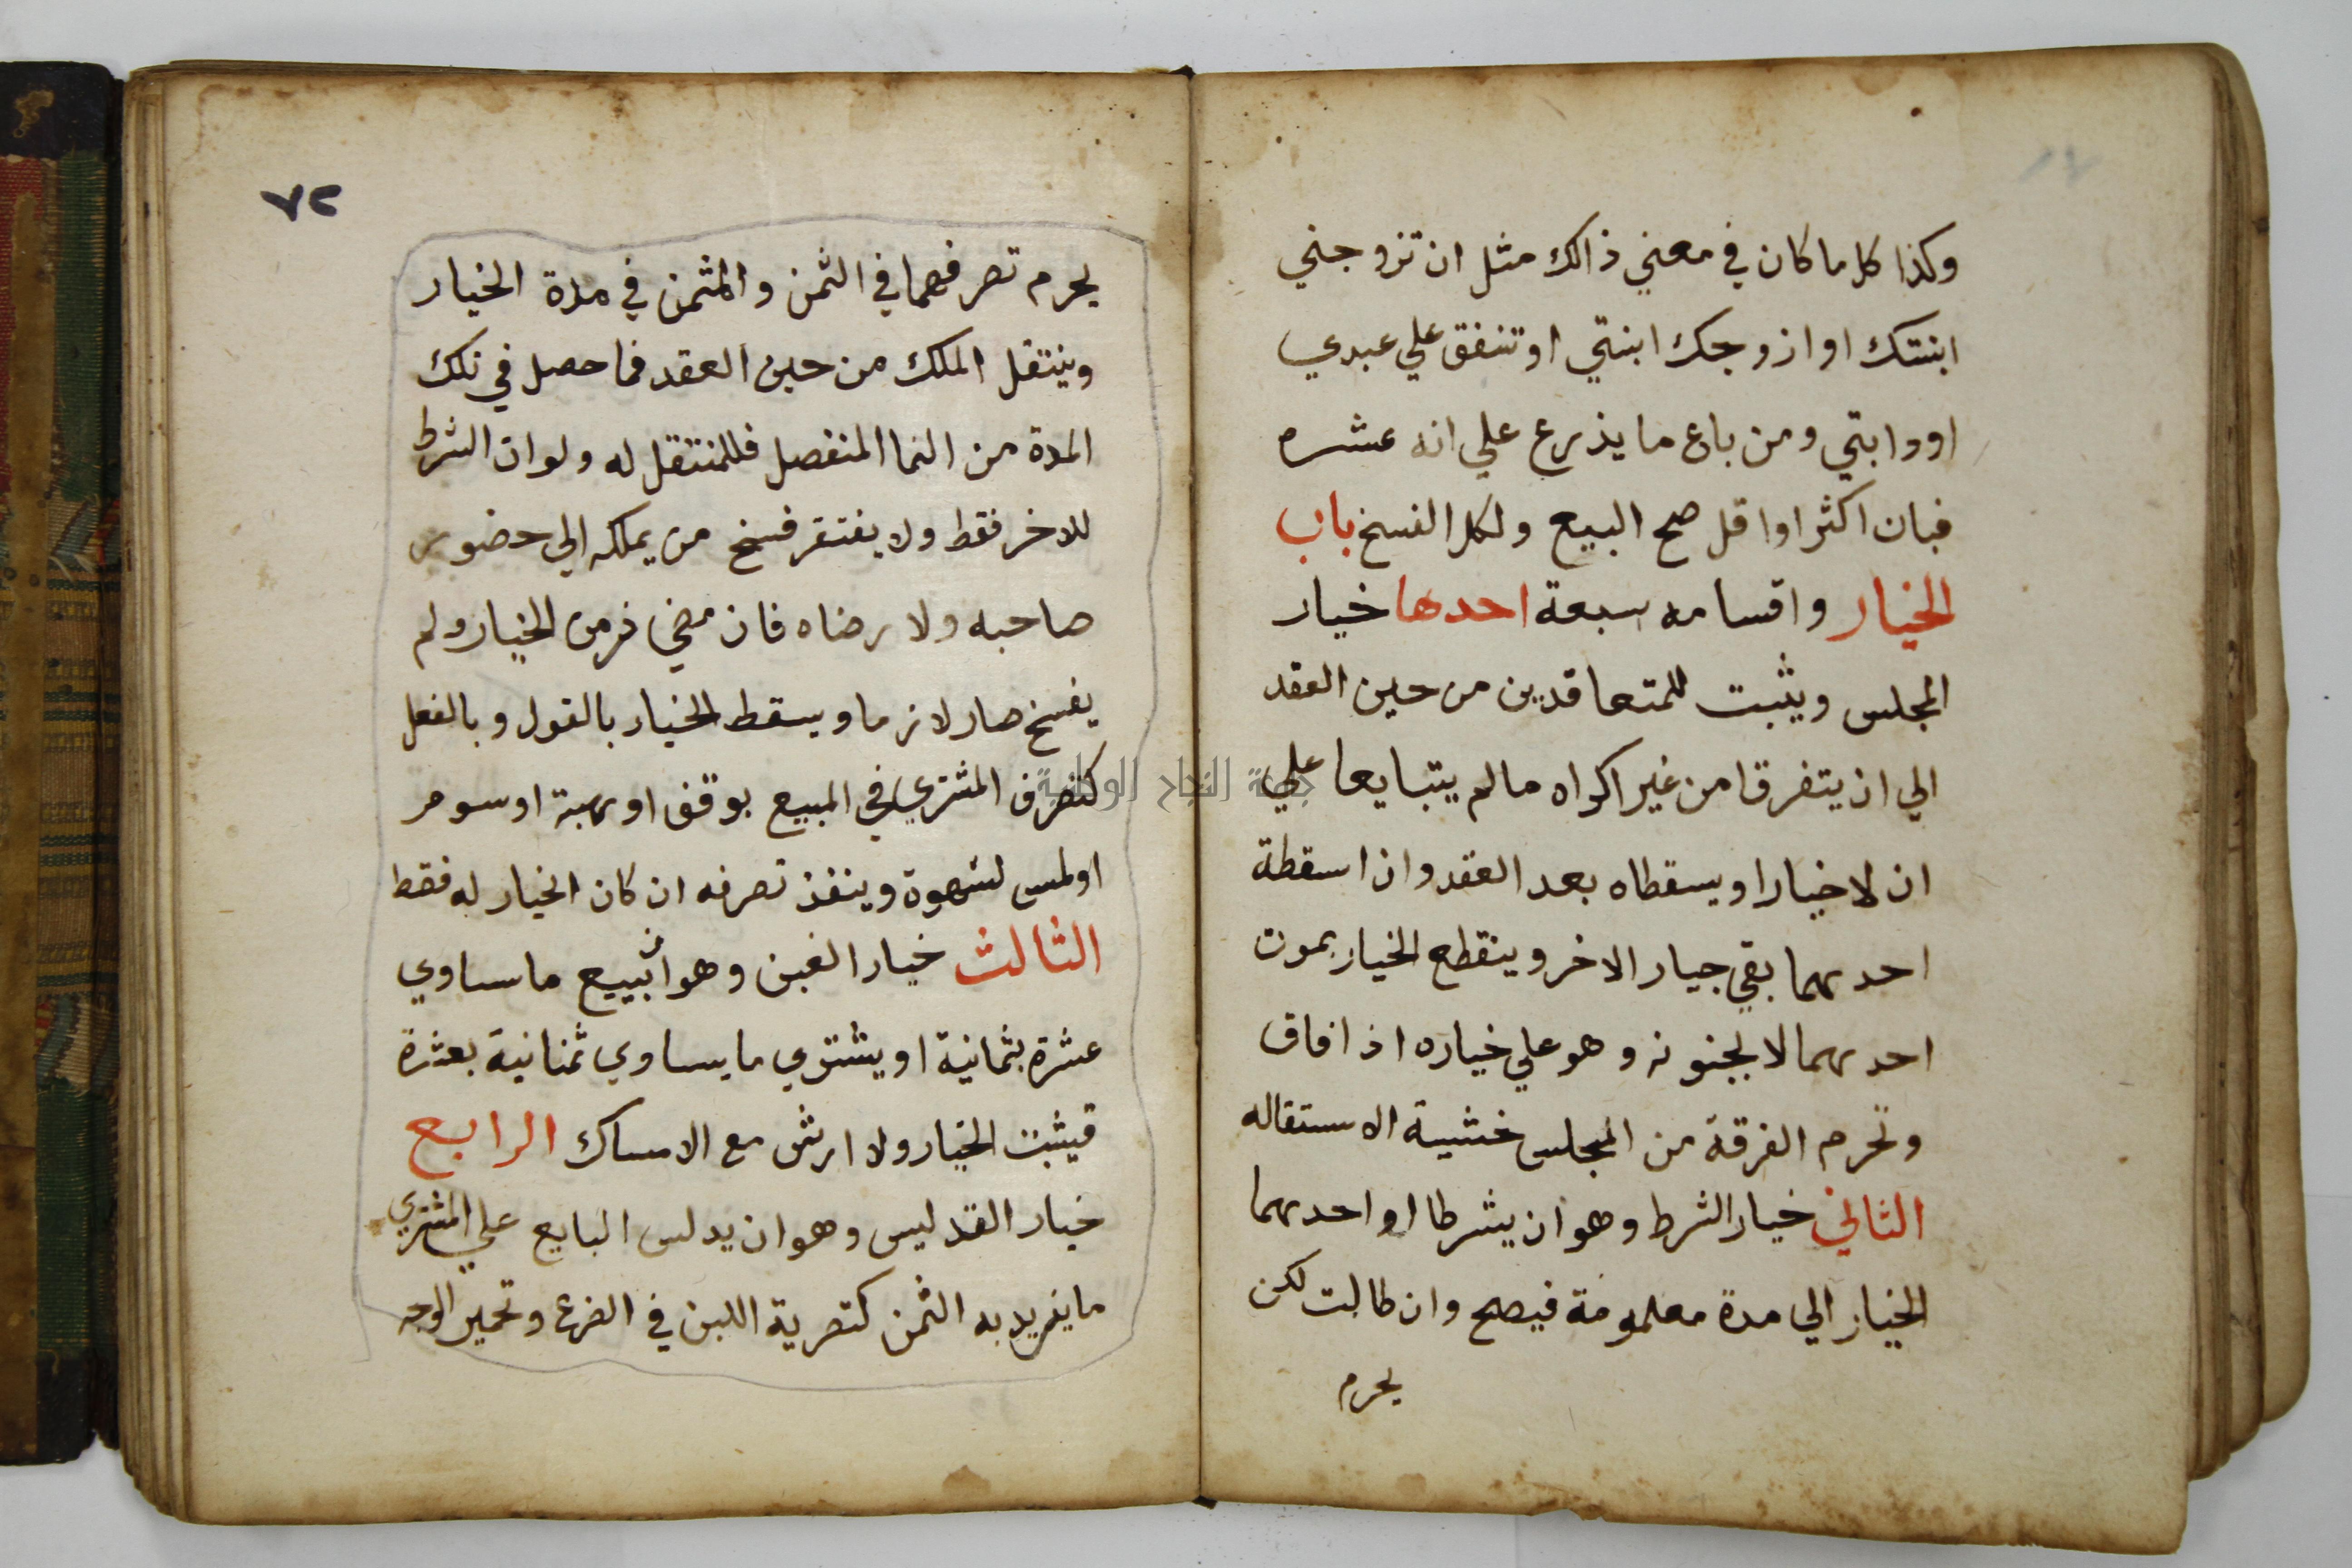 وكذا كل ما كان في معني ذالك مثل ان تزوجني
ابنتك او ازوجك ابنتي او تنفق علي عبدي
او دابتي ومن باع ما يذرع علي انه عشره
فبان اكثر او اقل صح البيع ولكل الفسخ باب
الخيار واقسامه سبعة احدها خيار
المجلس ويثبت للمتعاقدين من حين العقد
الي ان يتفرقا من غير اكراه ما لم يتبايعا علي
ان لا خيار او يسقطاه بعد العقد وان اسقطة
احدهما بقي جيار الاخر وينقطع الخيار بموت
احدهما لا لجنونه وهو علي خياره اذ افاق
وتحرم الفرقة من المجلس خشية الاستقاله
الثاني خيار الشرط وهو ان يشرطا او احدهما
الخيار الي مدة معلومة فيصح وان طالت لكن
يحرم
٧٢
يحرم تصرفهما في الثمن والمثمن في مدة الخيار
وينتقل الملك من حين العقد فما حصل في تلك
المدة من النما المنفصل فللمنتقل له ولو ان الشرط
للاخر فقط ولا يفتقر فسخ من يملكه الي حضور
صاحبه ولا رضاه فان مضي زمن الخيار ولم
يفسخ صار لازما ويسقط الخيار بالقول وبالفعل
كتصرف المشتري في المبيع بوقف او بهبة او سوم
او لمس لشهوة وينفذ تصرفه ان كان الخيار له فقط
الثالث خيار الغبن وهو ان يبيع ما ساوي
عشرة بثمانية او يشتري ما يساوي ثمنانية بعشرة
فيثبت الخيار ولا ارش مع الامساك الرابع
خيار التدليس وهو ان يدلس البايع علي المشتري
ما يزيد به الثمن كتصرية اللبن في الضرع وتحمير الوجه
جامعة النجاح الوطنية